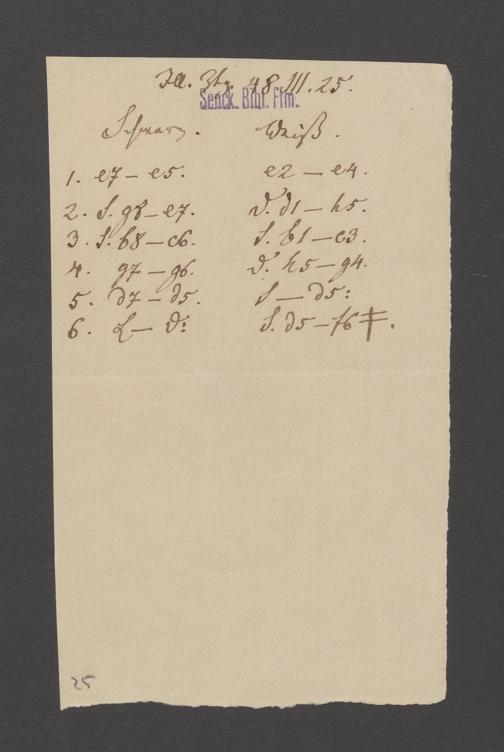 Ztg. 48. III. 25.
Senck. Bibl. Ffm.
Schwarz. Weiß.
1. e7 — e5. e2 — e4.
2. S. g8 — e7. D. d1 — h5.
3. S. b8 — c6. S. b1 — c3.
4. g7 — g6. D. h5 — g4.
5. d7 — d5. S — d5:
6. L — D: S. d5 — f6 ‡.
25